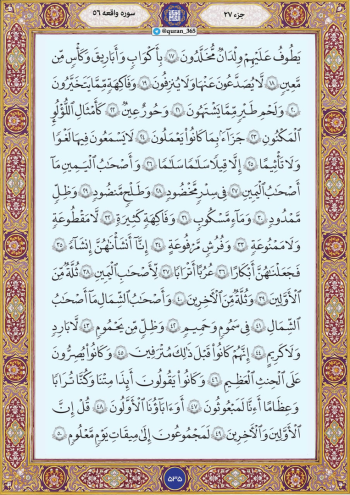 جزء ٢٧
@quran_365
سوره واقعه ٥٦
يَطُوفُ عَلَيْهِمْ وِلْدَانٌ مُّخَلَّدُونَ ١٧ بِأَكْوَابٍ وَأَبَارِيقَ وَكَأْسٍ مِّن
مَّعِينٍ ١٨ لَّا يُصَدَّعُونَ عَنْهَا وَلَا يُنزِفُونَ ١٩ وَفَاكِهَةٍ مِّمَّا يَتَخَيَّرُونَ
٢٠ وَلَحْمِ طَيْرٍ مِّمَّا يَشْتَهُونَ ٢١ وَحُورٌ عِينٌ ٢٢ كَأَمْثَالِ اللُّؤْلُؤِ
الْمَكْنُونِ ٢٣ جَزَاءً بِمَا كَانُوا يَعْمَلُونَ ٢٤ لَا يَسْمَعُونَ فِيهَا لَغْوًا
وَلَا تَأْثِيمًا ٢٥ إِلَّا قِيلًا سَلَامًا سَلَامًا ٢٦ وَأَصْحَابُ الْيَمِينِ مَا
أَصْحَابُ الْيَمِينِ ٢٧ فِي سِدْرٍ مَّخْضُودٍ ٢٨ وَطَلْحٍ مَّنضُودٍ ٢٩ وَظِلٍّ
مَّمْدُودٍ ٣٠ وَمَاءٍ مَّسْكُوبٍ ٣١ وَفَاكِهَةٍ كَثِيرَةٍ ٣٢ لَّا مَقْطُوعَةٍ
وَلَا مَمْنُوعَةٍ ٣٣ وَفُرُشٍ مَّرْفُوعَةٍ ٣٤ إِنَّا أَنشَأْنَاهُنَّ إِنشَاءً ٣٥
فَجَعَلْنَاهُنَّ أَبْكَارًا ٣٦ عُرُبًا أَتْرَابًا ٣٧ لِّأَصْحَابِ الْيَمِينِ ٣٨ ثُلَّةٌ مِّنَ
الْأَوَّلِينَ ٣٩ وَثُلَّةٌ مِّنَ الْآخِرِينَ ٤٠ وَأَصْحَابُ الشِّمَالِ مَا أَصْحَابُ
الشِّمَالِ ٤١ فِي سَمُومٍ وَحَمِيمٍ ٤٢ وَظِلٍّ مِّن يَحْمُومٍ ٤٣ لَّا بَارِدٍ
وَلَا كَرِيمٍ ٤٤ إِنَّهُمْ كَانُوا قَبْلَ ذَٰلِكَ مُتْرَفِينَ ٤٥ وَكَانُوا يُصِرُّونَ
عَلَى الْحِنثِ الْعَظِيمِ ٤٦ وَكَانُوا يَقُولُونَ أَئِذَا مِتْنَا وَكُنَّا تُرَابًا
وَعِظَامًا أَءِنَّا لَمَبْعُوثُونَ ٤٧ أَوَءَابَاؤُنَا الْأَوَّلُونَ ٤٨ قُلْ إِنَّ
الْأَوَّلِينَ وَالْآخِرِينَ ٤٩ لَمَجْمُوعُونَ إِلَىٰ مِيقَاتِ يَوْمٍ مَّعْلُومٍ ٥٠
٥٣٥